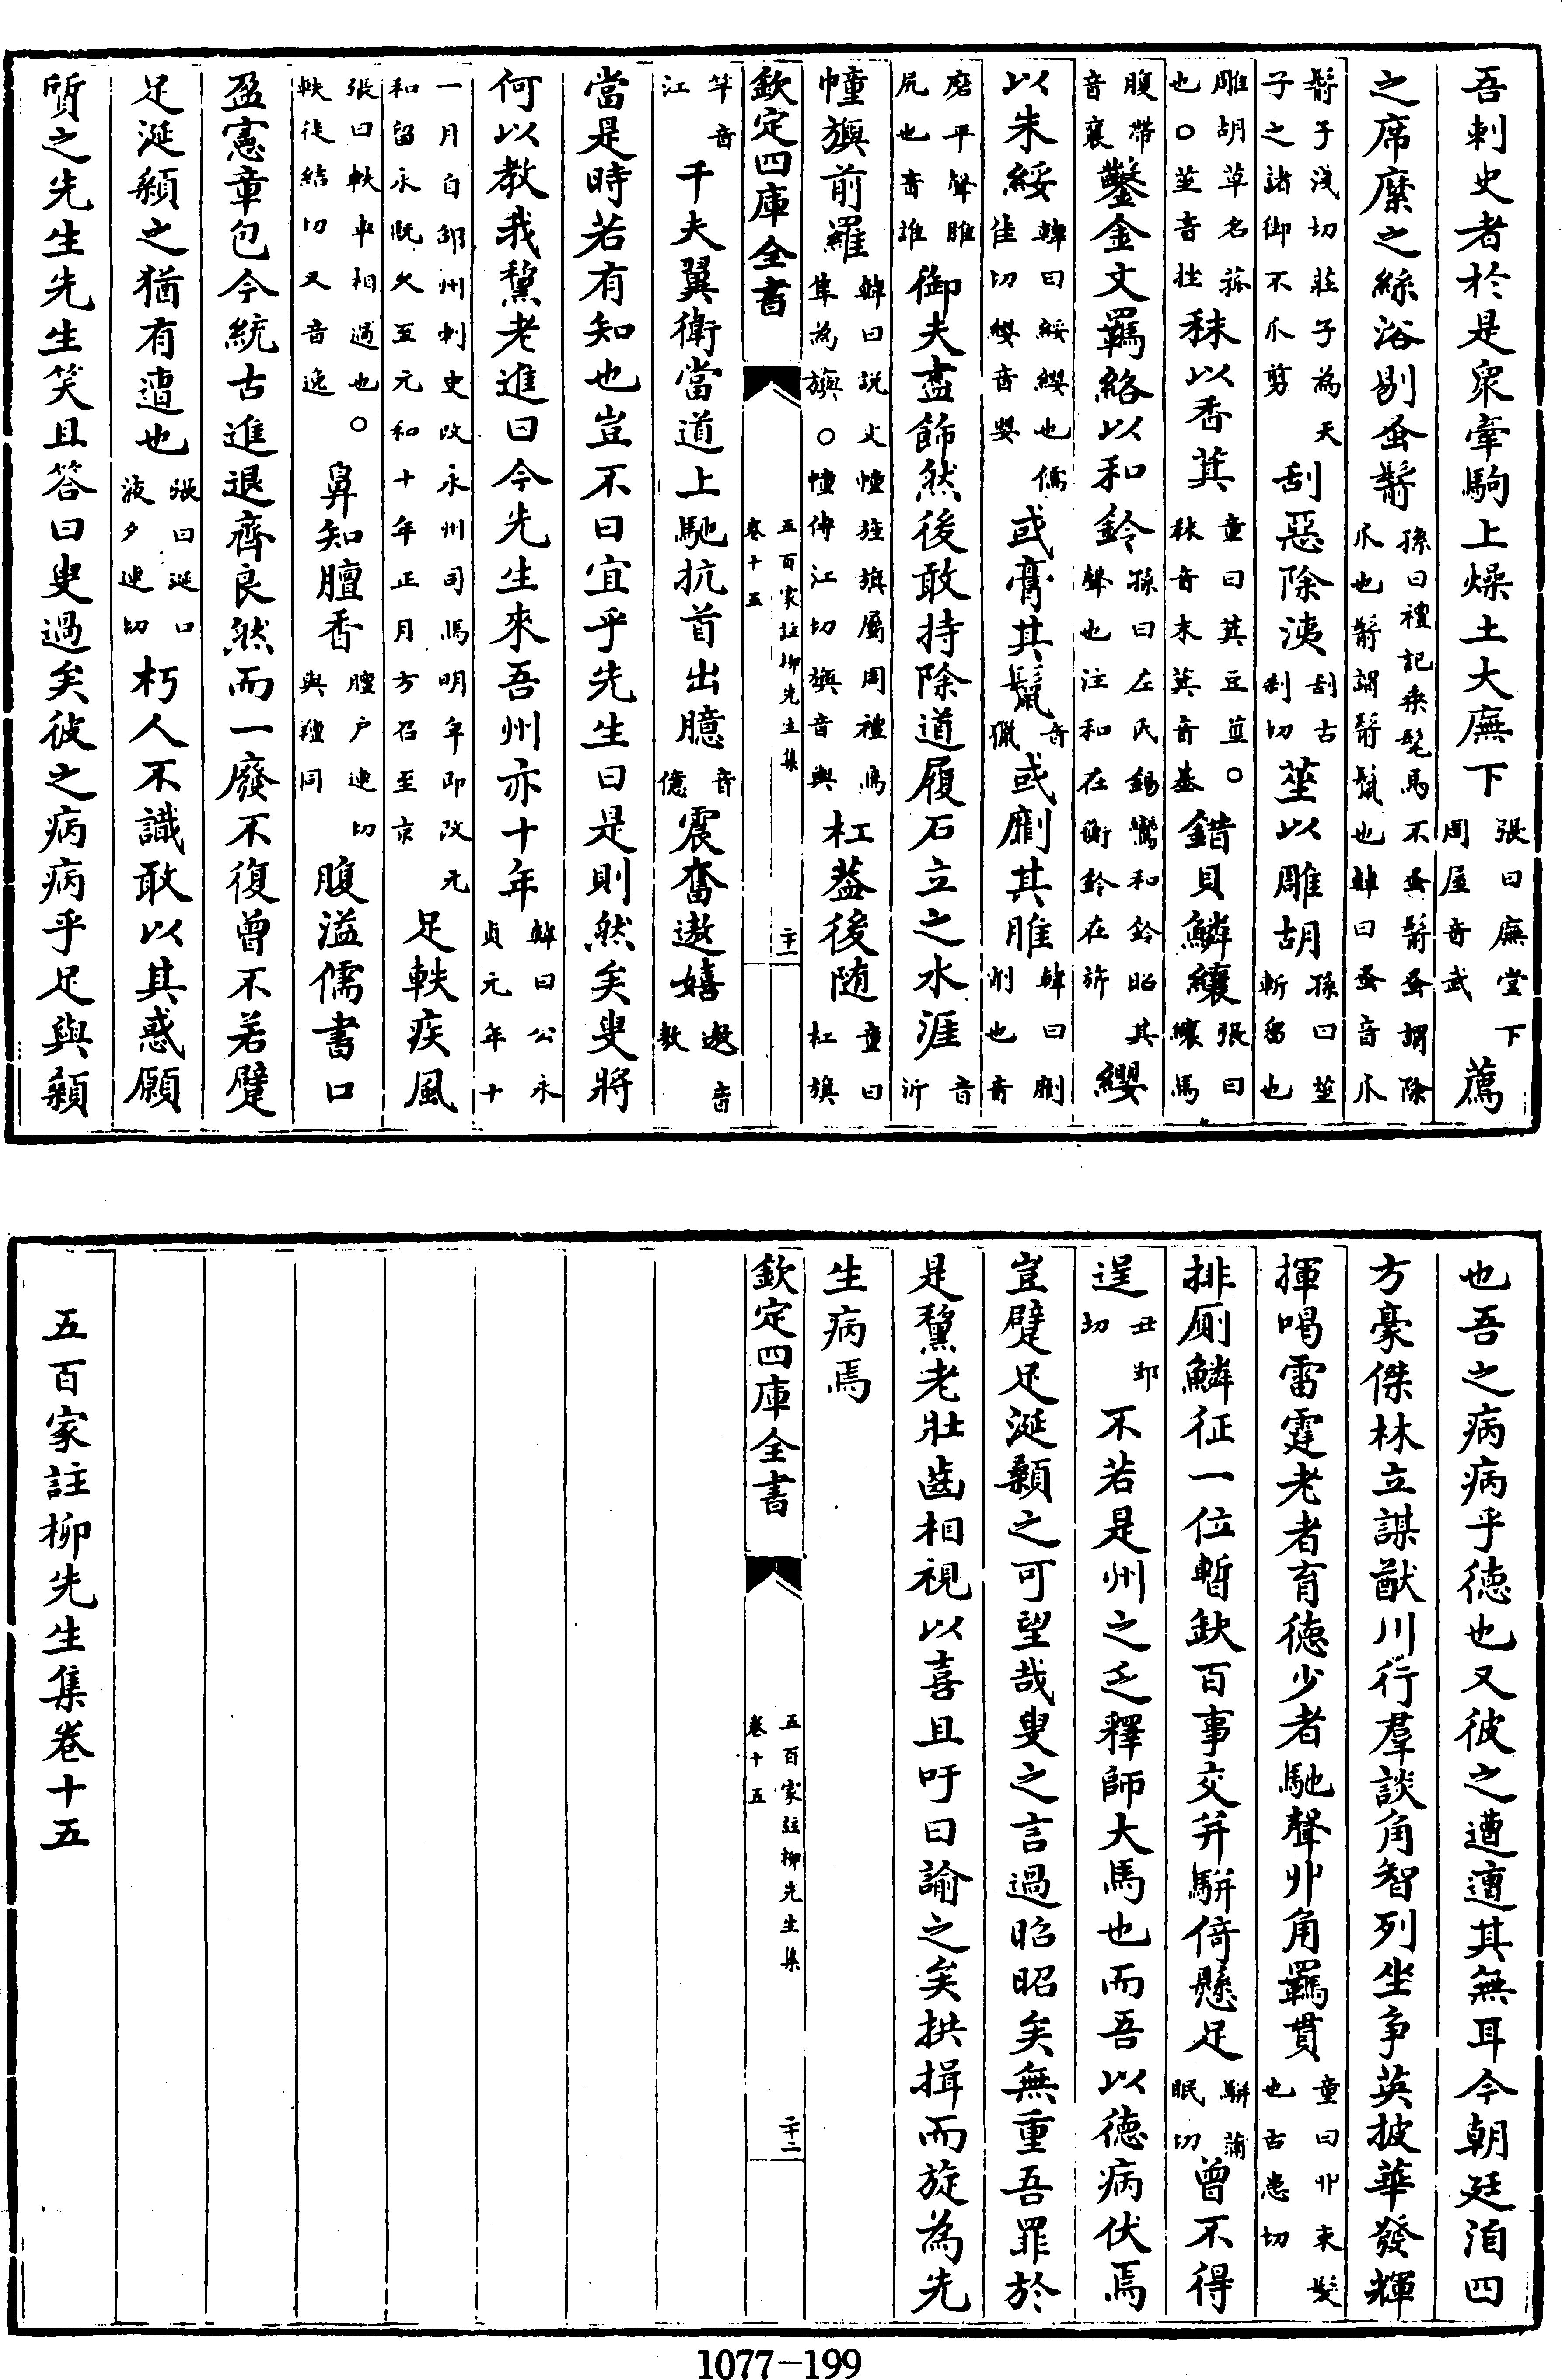 吾刺史者於是衆牽駒上燥土大廡下張曰廡堂下周屋音武薦
之席縻之絲浴剔蚤鬋孫曰禮記乘髦馬不蚤鬋蚤謂除爪也鬋謂鬋鬣也韓曰蚤音爪
鬋子淺切莊子為天子之諸御不爪剪刮惡除洟刮古刹切莝以雕胡孫曰莝斬芻也
雕胡草名菰也○莝音挫秣以香萁童曰萁豆䓀○秣音末萁音基錯貝鱗纕張曰纕馬
腹帶音襄鑿金文羈絡以和鈴孫曰左氏錫鸞和鈴昭其聲也注和在衡鈴在旂纓
以朱綏韓曰綏纓也儒佳切纓音嬰或膏其鬣音獵或劘其脽韓曰劘削也音
磨平聲脽尻也音誰御夫盡飾然後敢持除道履石立之水涯音沂
幢旟前羅韓曰説文幢旌旗屬周禮鳥隼為旟○幢傳江切旟音與杠蓋後随童曰杠旗
欽定四庫全書 五百家註柳先生集卷十五 二十一
竿音江千夫翼衛當道上馳抗首出臆音億震奮遨嬉遨音敖
當是時若有知也豈不曰宜乎先生曰是則然矣叟將
何以教我黧老進曰今先生來吾州亦十年韓曰公永貞元年十
一月自邵州刺史改永州司馬明年即改元和留永既久至元和十年正月方召至京足軼疾風
張曰軼車相過也○軼徒結切又音逸鼻知膻香膻尸連切與羶同腹溢儒書口
盈憲章包今統古進退齊良然而一廢不復曾不若躄
足涎顙之猶有遭也張曰涎口液夕連切朽人不識敢以其惑願
質之先生先生笑且答曰叟過矣彼之病病乎足與顙
也吾之病病乎德也又彼之遭遭其無耳今朝廷洎四
方豪傑林立謀猷川行羣談角智列坐爭英披華發輝
揮喝雷霆老者育德少者馳聲丱角羈貫童曰丱束髮也古患切
排厠鱗征一位暫缺百事交并駢倚懸足駢蒲眠切曾不得
逞丑郢切不若是州之乏釋師大馬也而吾以德病伏焉
豈躄足涎顙之可望哉叟之言過昭昭矣無重吾罪於
是黧老壯齒相視以喜且吁曰諭之矣拱揖而旋為先
生病焉
欽定四庫全書 五百家註柳先生集卷十五 二十二
五百家註柳先生集卷十五
1077-199